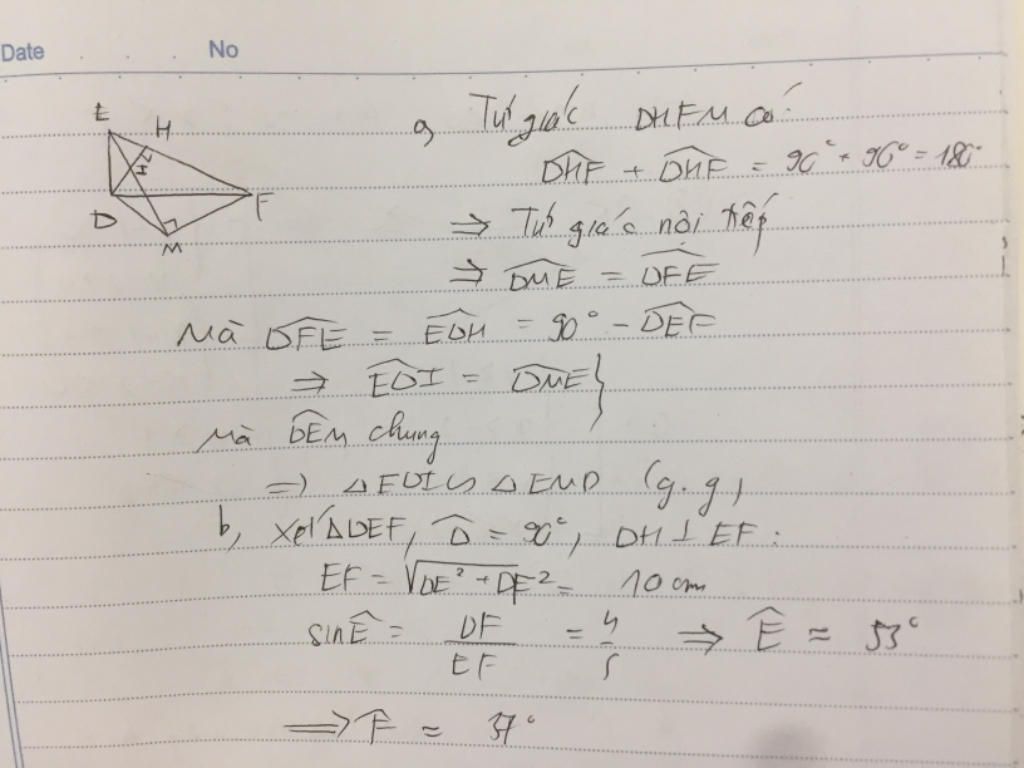 Date No
E H I D F M
a, Tứ giác DHFM có:
∠DHF + ∠DHF = 90° + 90° = 180°
⇒ Tứ giác nội tiếp
⇒ ∠DME = ∠DFE
Mà ∠DFE = ∠EDH = 90° - ∠DEF
⇒ ∠EDI = ∠DME }
Mà ∠DEM chung
=) △EDI ∽ △EMD (g.g)
b, Xét △DEF, ∠D = 90°, DH ⊥ EF:
EF = √DE² + DF² = 10 cm
sin∠E = DF/EF = 4/5 ⇒ ∠E ≈ 53°
⇒ ∠F ≈ 37°